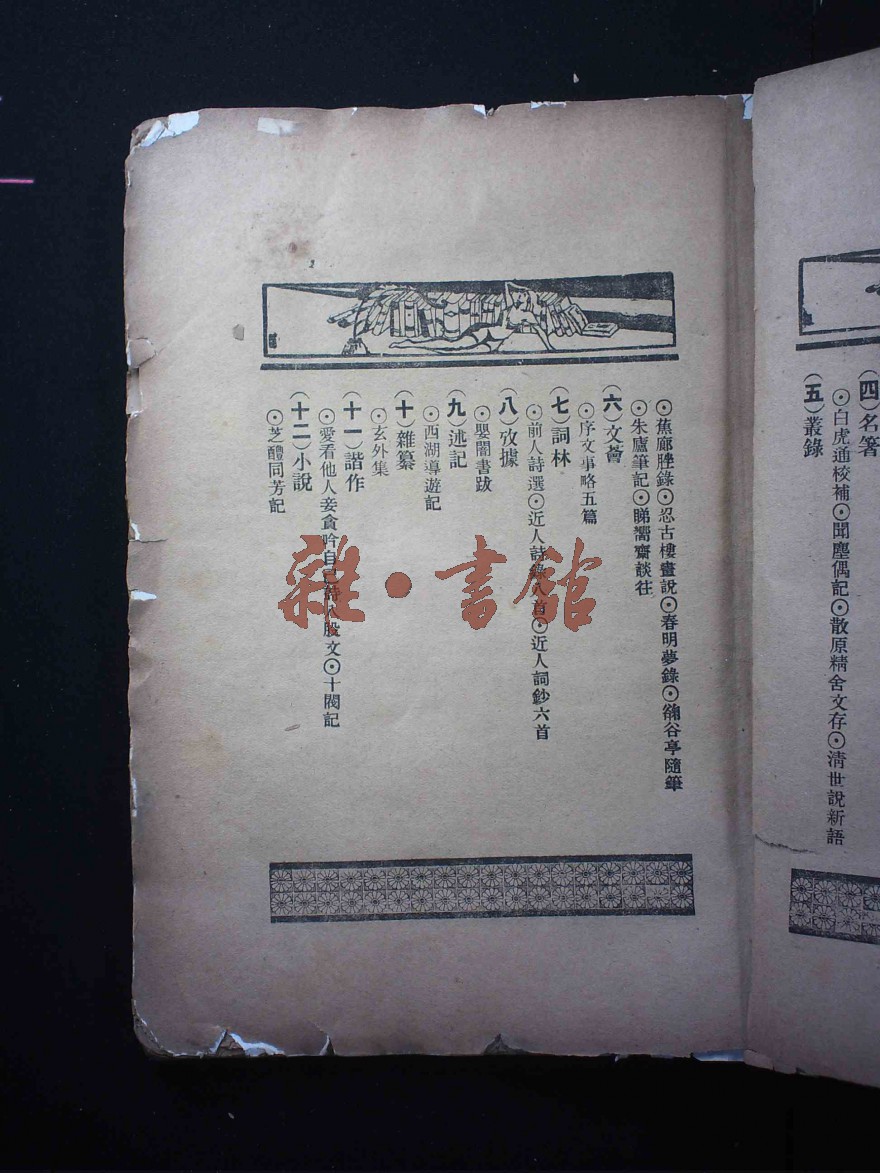 (四)名箸
⊙白虎通校補⊙聞塵偶記⊙散原精舍文存⊙淸世說新語
(五)叢錄
⊙蕉廊脞錄⊙忍古樓畫說⊙春明夢錄⊙谷亭隨筆
⊙朱廬筆記⊙睇嚮齋談往
(六)文薈
⊙序文事略五篇
(七)詞林
⊙前人詩選⊙近人詩錄八首⊙近人詞鈔六首
(八)攷據
⊙嬰闇書跋
(九)述記
⊙西湖導遊記
(十)雜纂
⊙玄外集
(十一)諧作
⊙愛看他人妾貪吟自己詩八股文⊙十閣記
(十二)小說
⊙芝醴同芳記
雜·書館